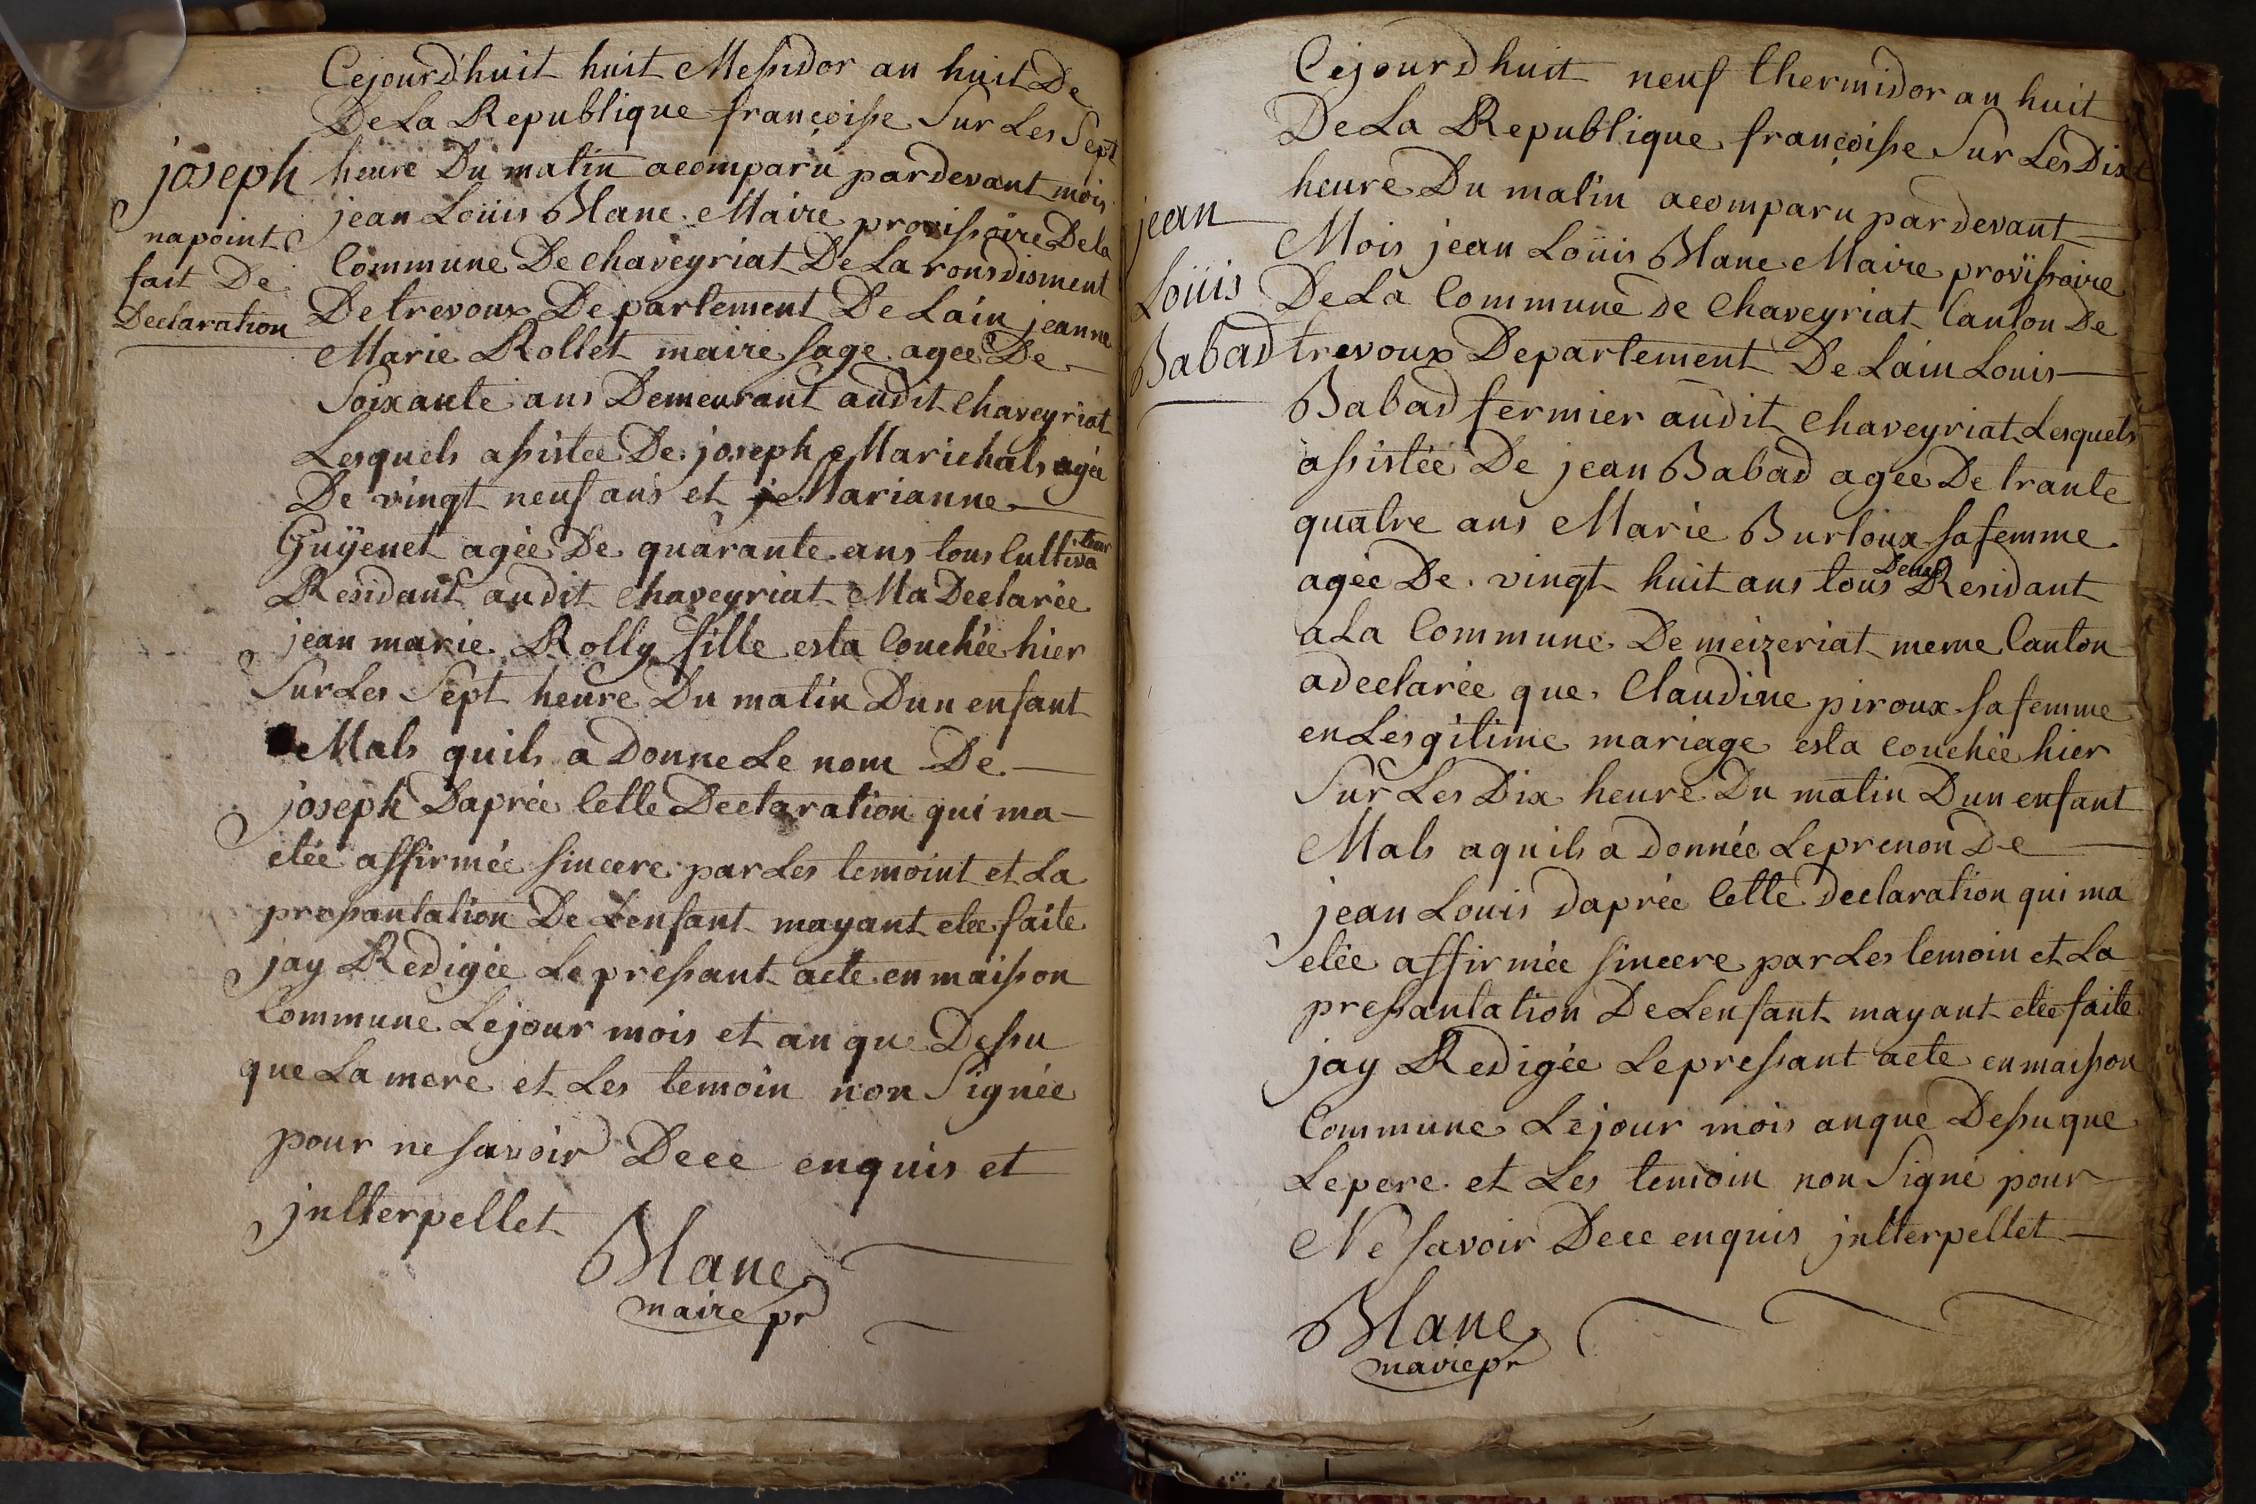 Cejourdhuit huit Messidor an huit De
De La Republique françoisse Sur Les Sept
heure Du matin acomparu pardevant mois
jean Loüis Blanc Maire provissoire De la
Commune De chaveyriat De La ronsdisment
De trevoux Departement De Lain jeanne
Marie Rollet maire sage agee De
Soixante ans Demeurant audit chaveyriat
Lesquels assistee De joseph Marichals agée
De vingt neuf ans et Marianne
Guÿenet agée De quarante ans tous Cultiva
teur
Residant audit chaveyriat Ma Declarée
jean marie Rolly fille esta Couchée hier
Sur Les Sept heure Du matin Dun enfant
Mals quils a Donne Le nom De
joseph Daprée Cette Declaration qui ma
etée affirmée sincere par Les temoint et La
pressantation De Lenfant mayant etée faite
jay Redigée Le pressant acte en maisson
Commune Le jour mois et an que Dessu
que La mere et Les temoin non Signée
pour ne savoir Dece enquis et
jnlterpellet
Blanc
maire pr
joseph
na point
fait De
Declaration
Cejourdhuit neuf thermidor an huit
De La Republique françoisse Sur Les Dixt
heure Du matin acomparu pardevant
Mois jean Loüis Blanc Maire provïssoire
De La Commune de Chaveyriat Canton De
trevoux Departement De Lain Louis
Babad fermier audit Chaveyriat Lesquels
assistée De jean Babad agée De trante
quatre ans Marie Burtoux sa femme
agée De vingt huit ans tous Deux Residant
a La Commune De meizeriat meme Canton
a declarée que Claudine piroux sa femme
en Lesgitime mariage esta couchée hier
Sur Les Dix heure Du matin Dun enfant
Mals a quils a Donnée Le prenon De
jean Louis Daprée Cette declaration qui ma
etée affirmée sincere par Les temoin et La
pressantation De Lenfant mayant etée faite
jay Redigée Le pressant acte en maisson
Commune Le jour mois an que Dessu que
Le pere et Les temoin non Signé pour
Ne savoir Dece enquis jnlterpellet
Blanc
maire pr
jean
Loüis
Babad